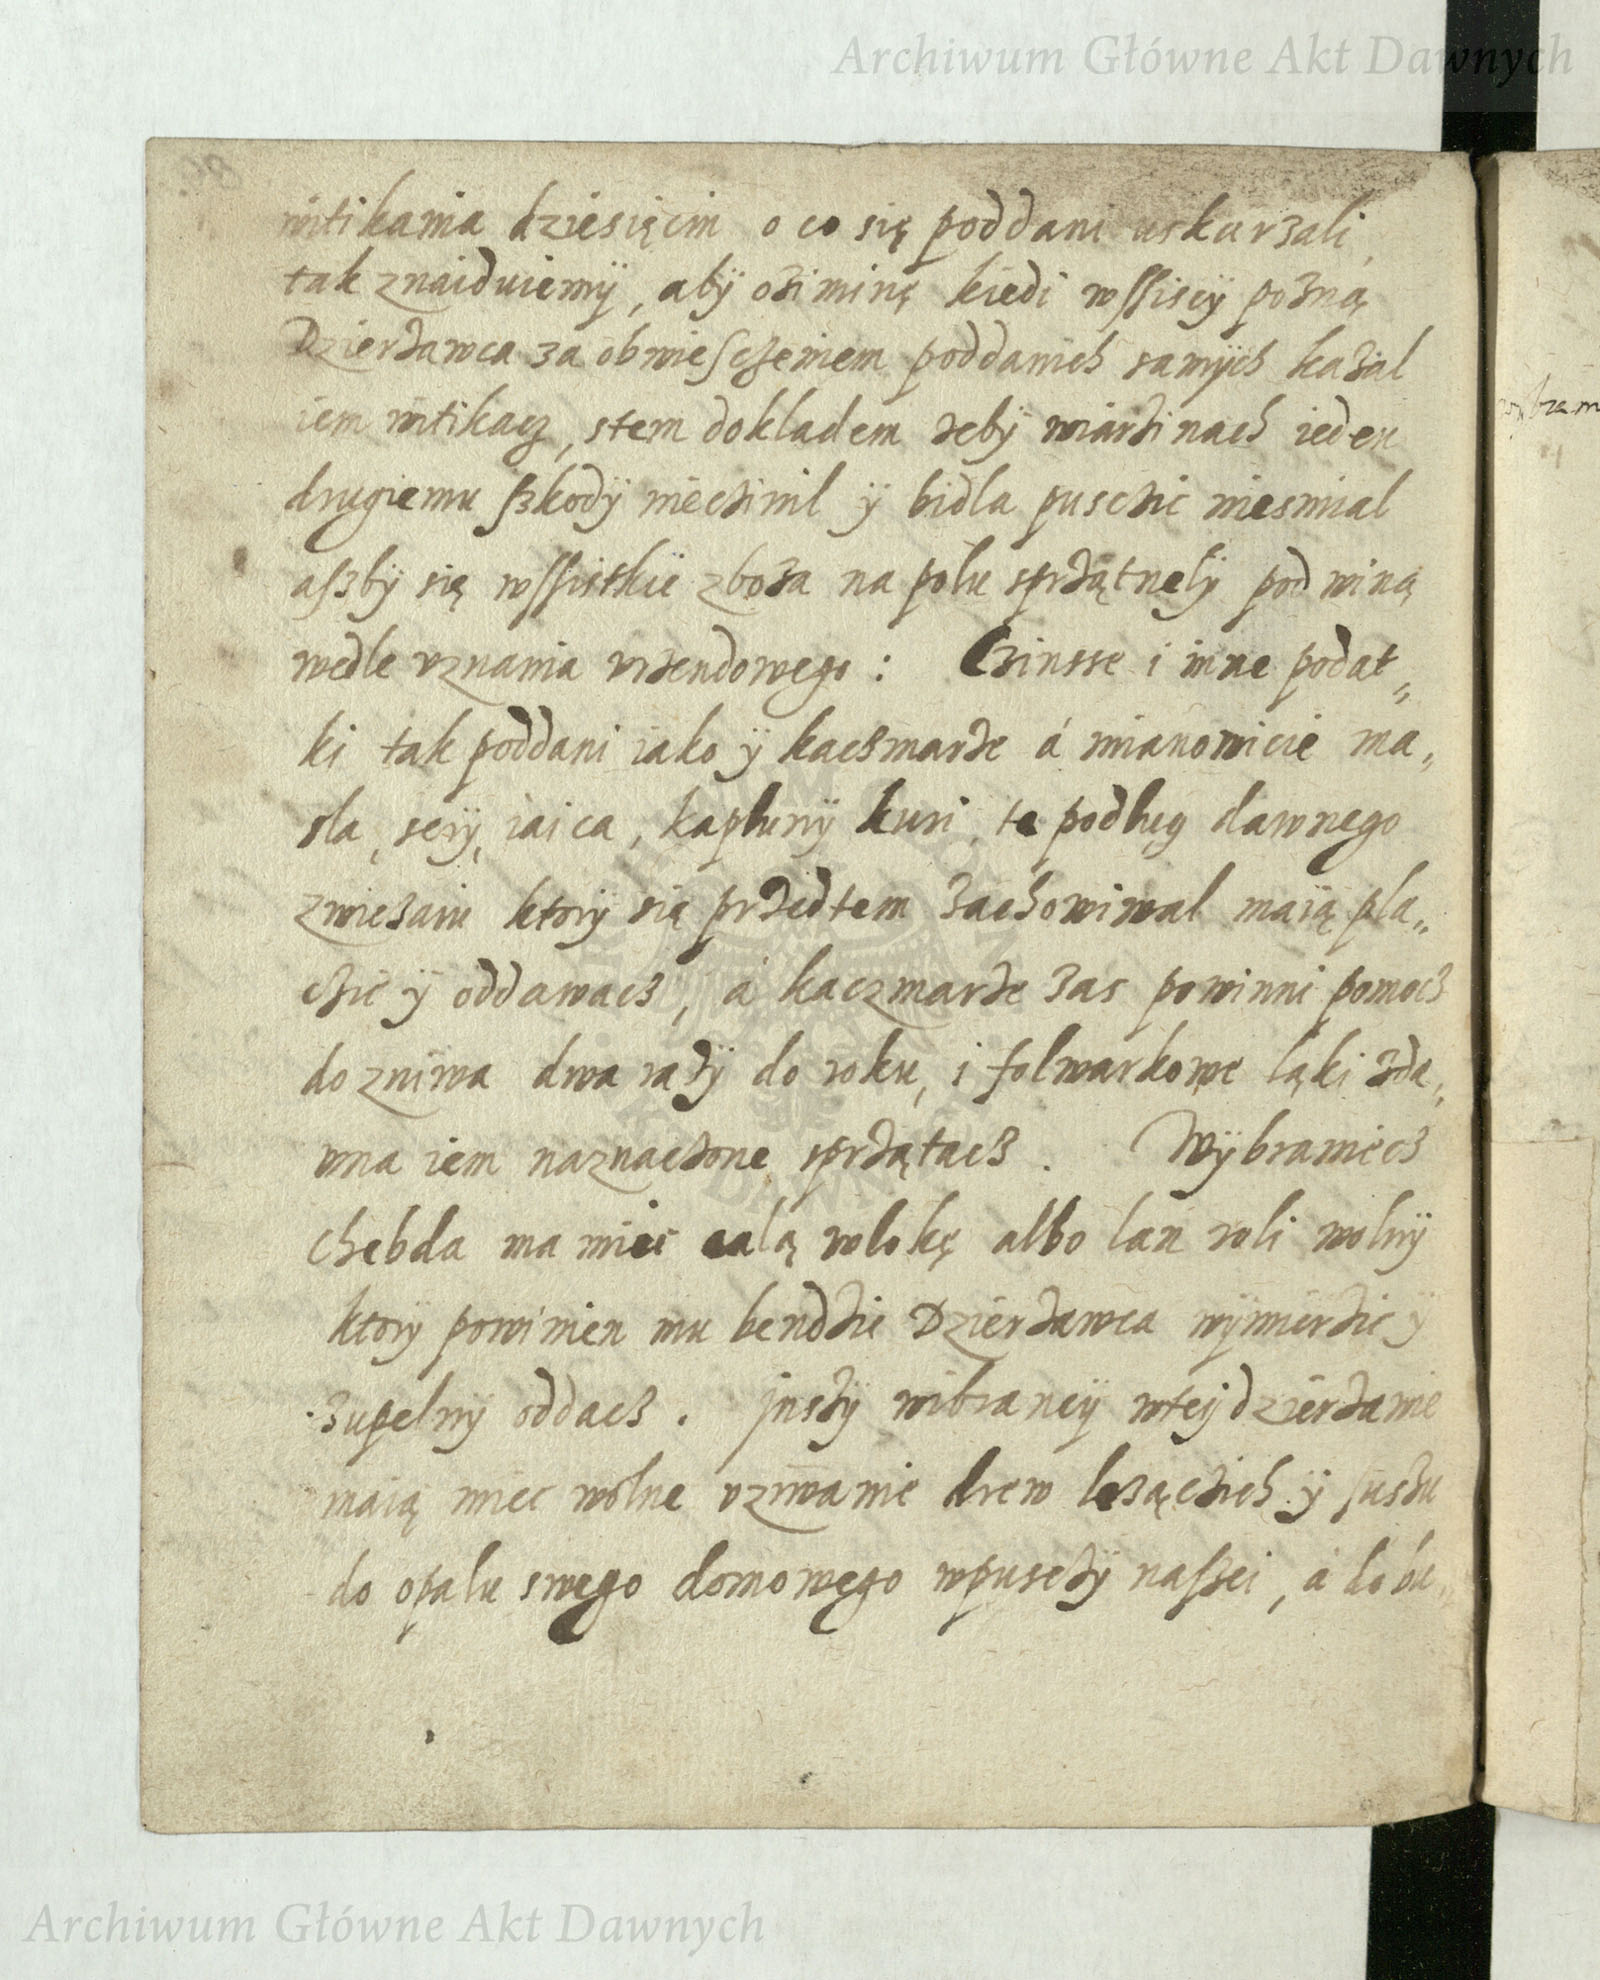 Archiwum Główne Akt Dawnych
witikania dziesięcin o co się poddani uskarzali,
tak znaiduiemÿ, abÿ oziminę kiedi wssiscÿ pozną
Dzierzawca za obwiesczeniem poddanich samÿch kazal
iem witikacz, stem dokladem zebÿ wiarzinach ieden
drugiemu szkodÿ nieczinil ÿ bidla pusczic niesmial
aszbÿ się wssistkie zboza na polu sprzątnelÿ pod winą
wedle vznania vrzendowego : Czinsse i inne podat„
ki tak poddani iako ÿ kaczmarze á mianowicie ma„
sla, serÿ, iaica, kaplunÿ kuri, te podlug dawnego
zwiczaiu ktorÿ się przedtem zachowiwal maią pla„
czic ÿ oddawacz, á kaczmarze zas powinni pomocz
do zniwa dwa razÿ do roku, i folwarkowe ląki zda„
wna iem naznaczone sprzątacz. Wÿbraniecz
chebda ma miec calą wlokę albo lan roli wolnÿ
ktorÿ powinien mu bendzie Dzierzawca wÿmierzic ÿ
zupelnÿ oddacz. jnszÿ wibrancÿ wteÿ dzierzawie
maią miec wolne vziwanie drew lezączich ÿ suszu
do opalu swego domowego wpusczÿ naszei, á do bu„
Archiwum Główne Akt Dawnych